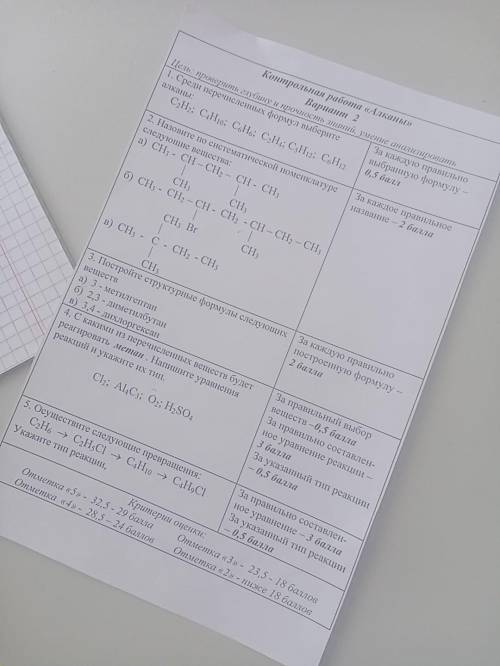 Контрольная работа «Алканы»
Вариант 2
Цель: проверить глубину и прочность знаний, умение анализировать
1. Среди перечисленных формул выберите
алканы:
C₂H₂; C₄H₁₀; C₆H₆; C₂H₄; C₅H₁₂; C₆H₁₂
За каждую правильно
выбранную формулу –
0,5 балл
2. Назовите по систематической номенклатуре
следующие вещества:
а) CH₃ - CH – CH₂ – CH - CH₃
CH₃ CH₃
б) CH₃ - CH₂ – CH - CH₂ - CH – CH₂ – CH₃
Br CH₃
CH₃
в) CH₃ - C - CH₂ - CH₃
CH₃
За каждое правильное
название – 2 балла
3. Постройте структурные формулы следующих
веществ
а) 3 - метилгептан
б) 2,3 - диметилбутан
в) 3,4 - дихлоргексан
За каждую правильно
построенную формулу –
2 балла
4. С какими из перечисленных веществ будет
реагировать метан. Напишите уравнения
реакций и укажите их тип.
Cl₂; Al₄C₃; O₂; H₂SO₄
За правильный выбор
веществ –0,5 балла
За правильно составлен-
ное уравнение реакции –
3 балла
За указанный тип реакции
– 0,5 балла
5. Осуществите следующие превращения:
C₂H₆ → C₂H₅Cl → C₄H₁₀ → C₄H₉Cl
Укажите тип реакции,
За правильно составлен-
ное уравнение – 3 балла
За указанный тип реакции
– 0,5 балла
Критерии оценки:
Отметка «5» - 32,5 - 29 балла Отметка «3» - 23,5 - 18 баллов
Отметка «4» - 28,5 – 24 баллов Отметка «2» - ниже 18 баллов